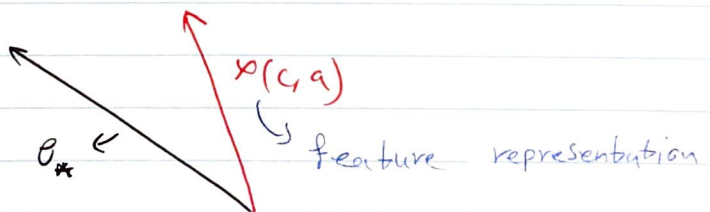 φ(c, a)
feature representation
θ*